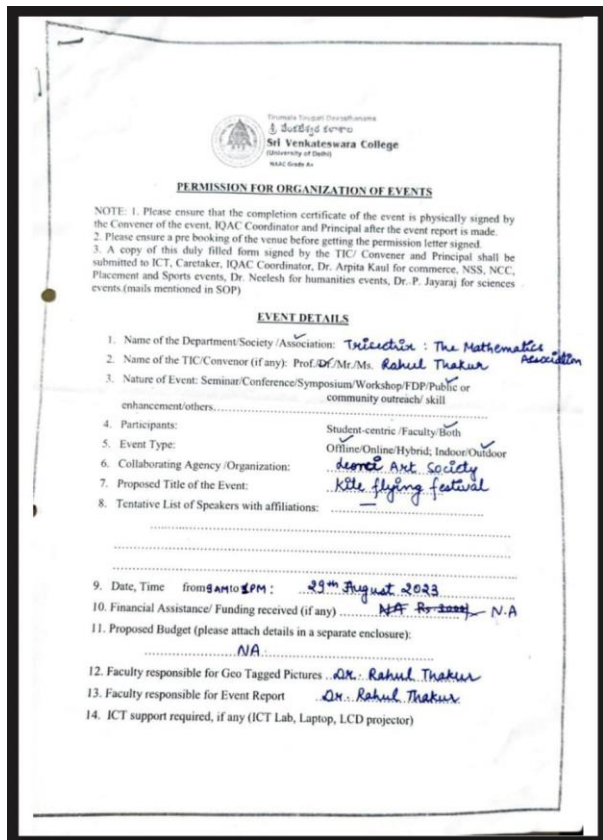 Tirumala Tirupati Devasthanams
శ్రీ వేంకటేశ్వర కళాశాల
Sri Venkateswara College
(University of Delhi)
NAAC Grade A+
PERMISSION FOR ORGANIZATION OF EVENTS
NOTE: 1. Please ensure that the completion certificate of the event is physically signed by
the Convener of the event, IQAC Coordinator and Principal after the event report is made.
2. Please ensure a pre booking of the venue before getting the permission letter signed.
3. A copy of this duly filled form signed by the TIC/ Convener and Principal shall be
submitted to ICT, Caretaker, IQAC Coordinator, Dr. Arpita Kaul for commerce, NSS, NCC,
Placement and Sports events, Dr. Neelesh for humanities events, Dr. P. Jayaraj for sciences
events.(mails mentioned in SOP)
EVENT DETAILS
1. Name of the Department/Society /Association: Trisectrix : The Mathematics
Association
2. Name of the TIC/Convenor (if any): Prof./Dr./Mr./Ms. Rahul Thakur
3. Nature of Event: Seminar/Conference/Symposium/Workshop/FDP/Public or
community outreach/ skill
enhancement/others
4. Participants: Student-centric /Faculty/Both
5. Event Type: Offline/Online/Hybrid; Indoor/Outdoor
6. Collaborating Agency /Organization: Art Society
7. Proposed Title of the Event: Kite flying festival
8. Tentative List of Speakers with affiliations: —
9. Date, Time from 9AM to 1PM : 29th August 2023
10. Financial Assistance/ Funding received (if any) NA Rs N.A
11. Proposed Budget (please attach details in a separate enclosure):
NA
12. Faculty responsible for Geo Tagged Pictures Dr. Rahul Thakur
13. Faculty responsible for Event Report Dr. Rahul Thakur
14. ICT support required, if any (ICT Lab, Laptop, LCD projector)